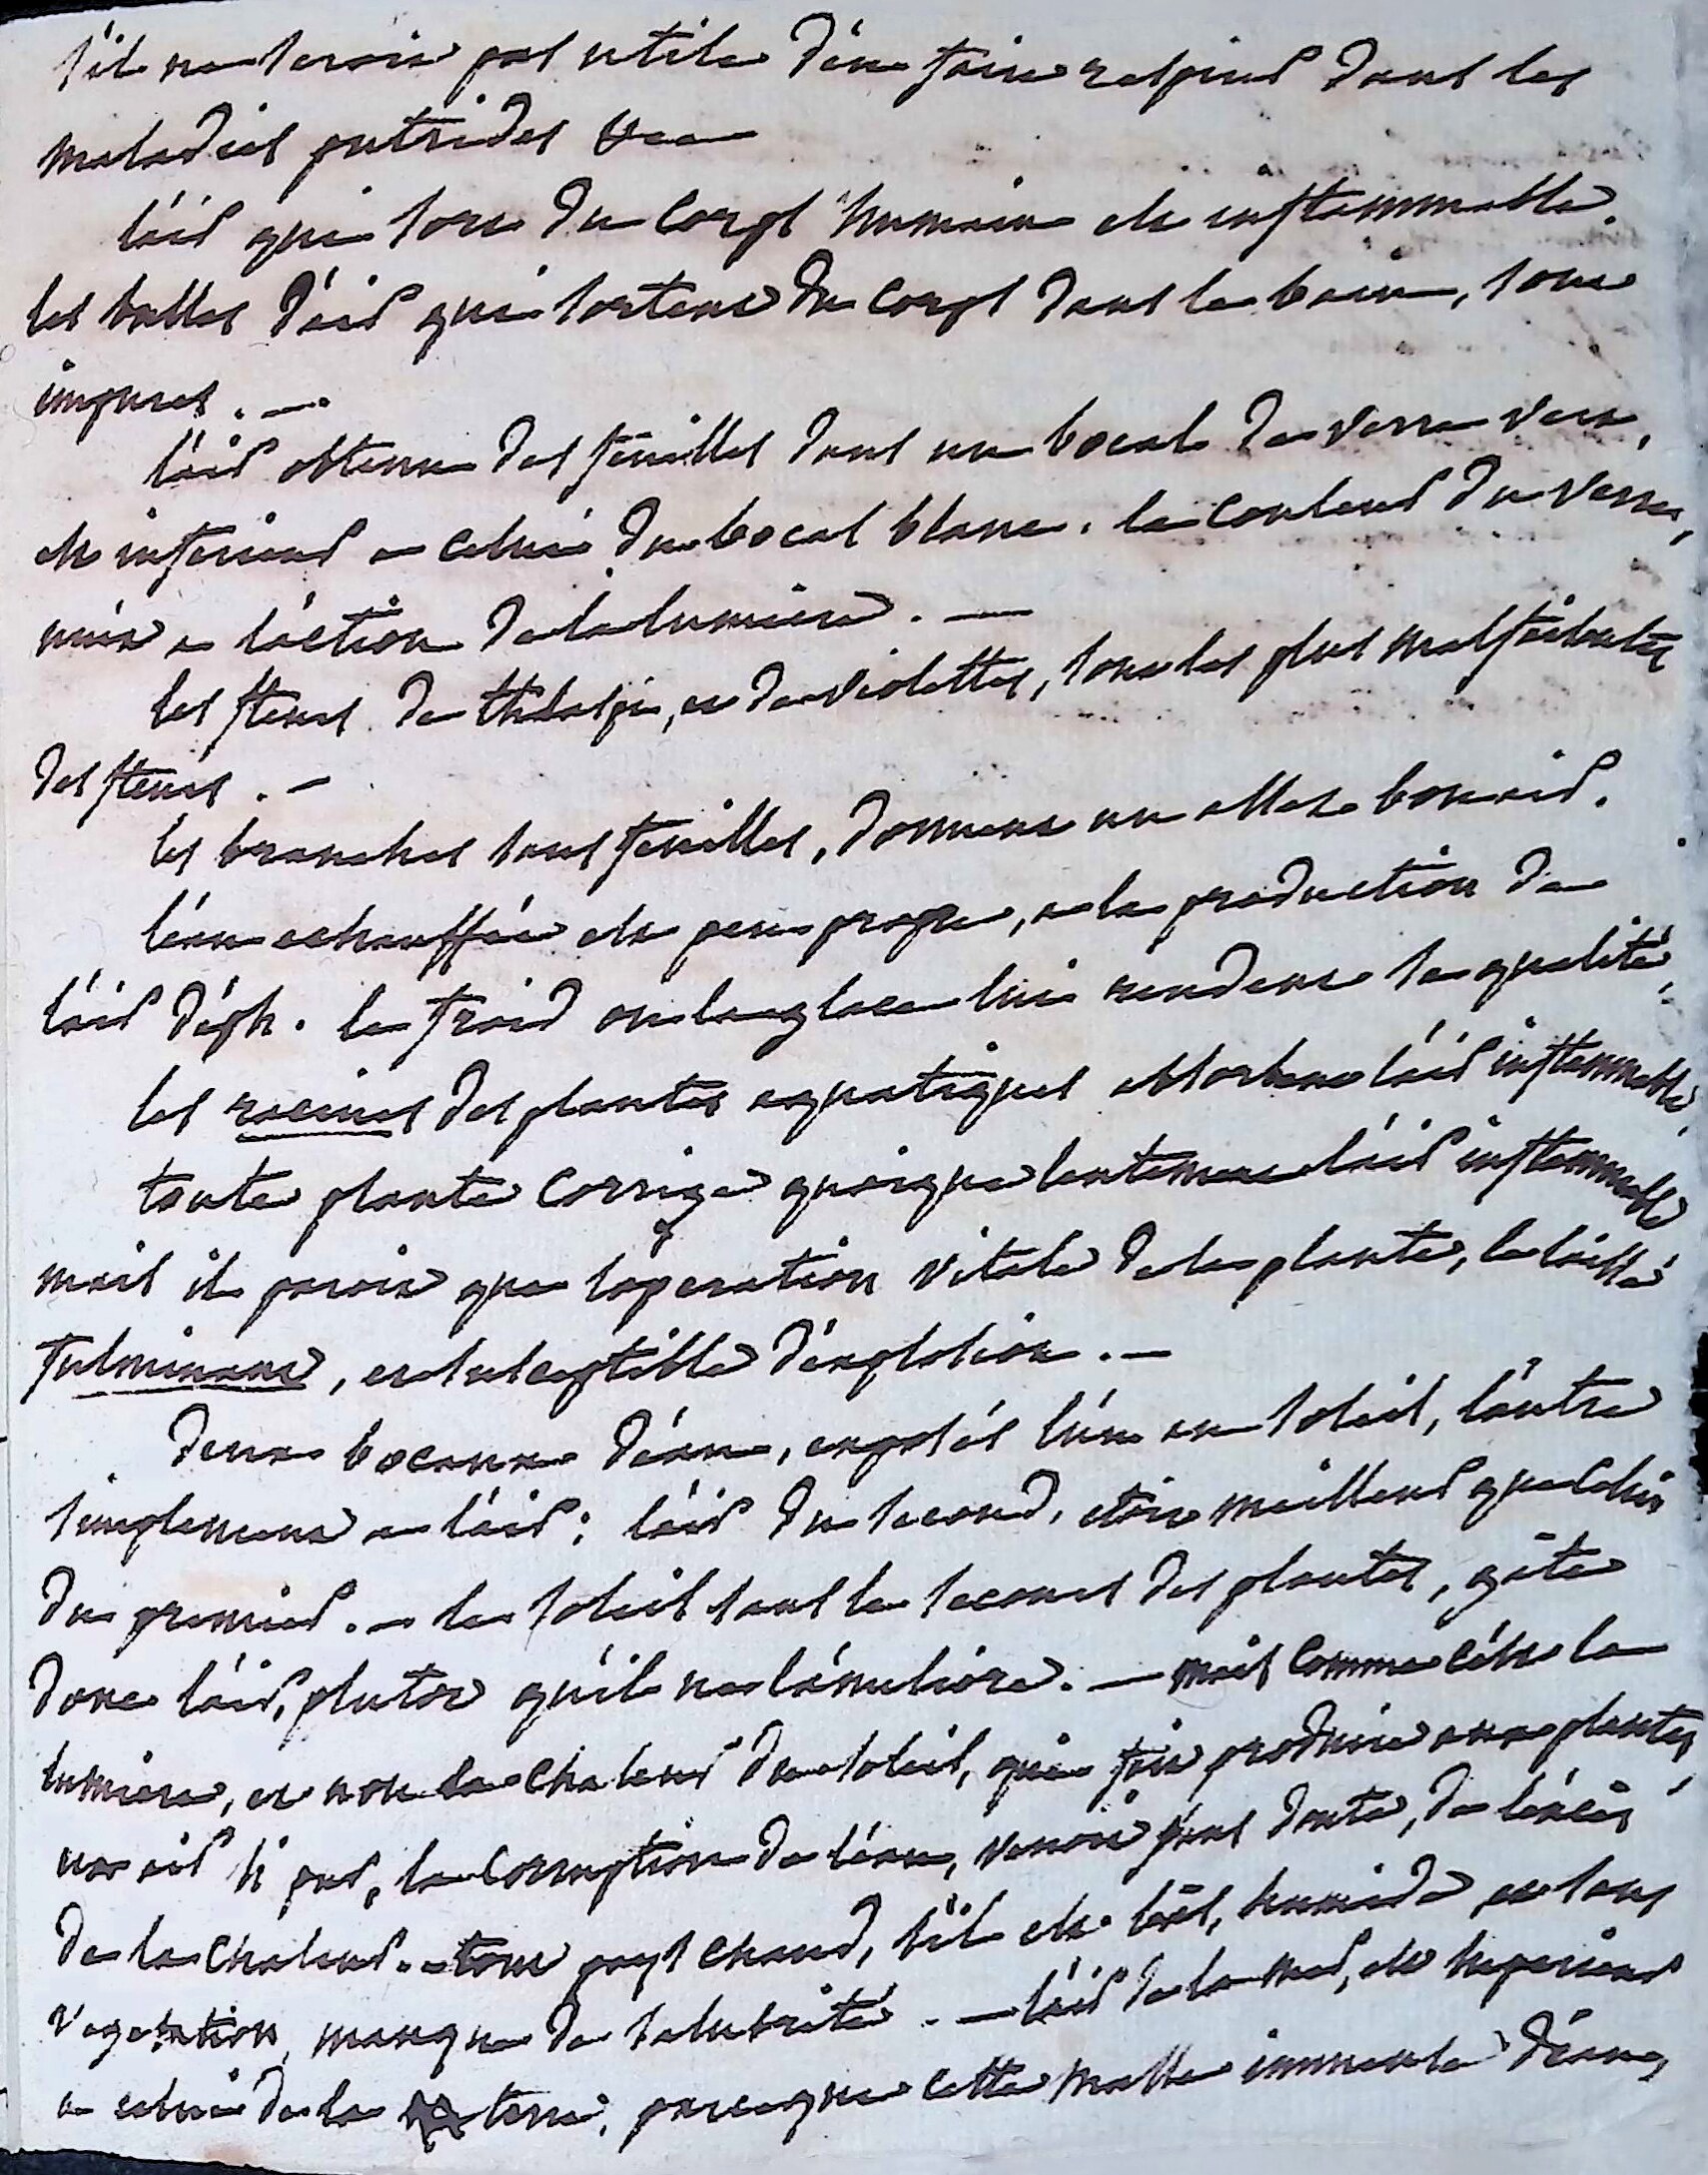 s'il ne seroit pas utile d'en faire respirer dans les
maladies putrides
l'air qui sort du corps humain est inflammable.
les bulles d'air qui sortent du corps dans le bain, sont
impures. —
l'air obtenu des feuilles dans un bocal de verre vert,
est inferieur a celui du bocal blanc. la couleur du verre,
nuit a l'action de la lumiere. —
les fleurs de thlaspi, et de violettes, sont les plus malfaisantes
des fleurs. —
les branches sans feuilles, donnent un assez bon air.
l'eau echauffée est peu propre, a la production de
l'air deph. le froid ou la glace lui rendent sa qualité,
les racines des plantes aquatiques absorbent l'air inflammable,
toute plante corrige quoique lentement l'air inflammable
mais il paroit que l'operation vitale de la plante, le laisse
fulminant, et susceptible d'explosion. —
deux bocaux d'eau, exposés l'un au soleil, l'autre
simplement a l'air; l'air du second, etoit meilleur que celui
du premier. — le soleil sans le secours des plantes, gâte
donc l'air, plutot qu'il ne l'ameliore. — mais comme c'est la
lumiere, et non la chaleur du soleil, qui fait produire aux plantes,
un air si pur, la corruption de l'eau, venoit sans doute, de l'éxcès
de la chaleur. — tout pays chaud, s'il est bas, humide et sans
vegetation, manque de salubrité. — l'air de la mer, est superieur
a celui de la terre, parceque cette masse immense d'eau,